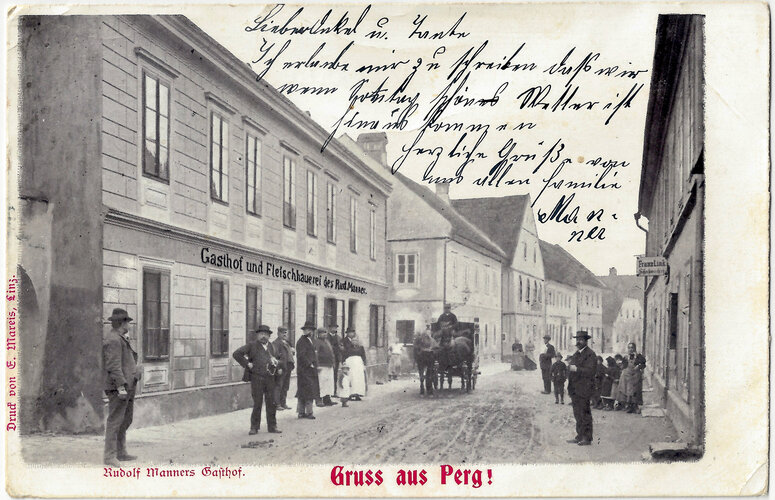 Lieber Onkel u. Tante
Ich erlaube mir zu schreiben dass wir
wenn Sontag schönes Wetter ist
hinaus kommen
herzliche Grüße von
uns allen Familie
Man-
ner
Gasthof und Fleischhauerei des Rud. Manner.
Franz Link
Druck von E. Mareis, Linz.
Rudolf Manners Gasthof.
Gruss aus Perg!